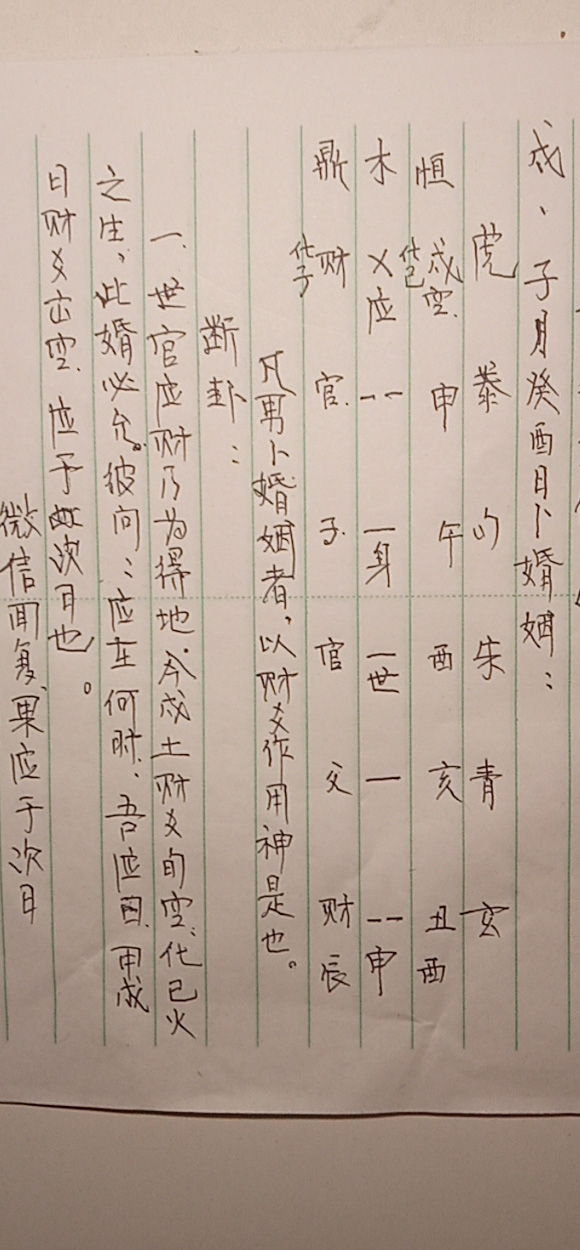 戌、子月癸酉日卜婚姻：
虎 蛇 勾 朱 青 玄
恒 戌空 化巳 申 午 酉 亥 丑 酉
木 乂应 -- 一身 一世 一 --申
鼎 财 化子 官 子 官 父 财 辰
凡男卜婚姻者，以财爻作用神是也。
断卦：
一、世官应财乃为得地，今戌土财爻旬空，化巳火
之生，此婚必允。彼问：应在何时，吾应曰，甲戌
日财爻出空，应于次日也。
微信回复，果应于次日